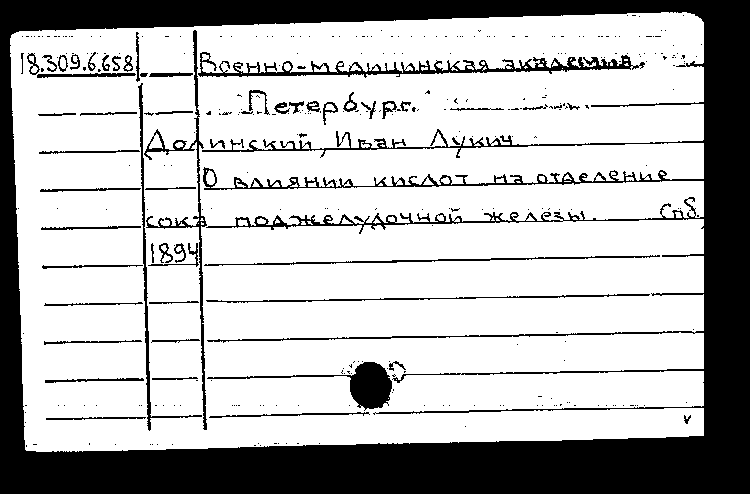 18.309.6.658 Военно-медицинская академия.
Петербург.
Долинский, Иван Лукич
О влиянии кислот на отделение
сока поджелудочной железы. Спб,
1894
v